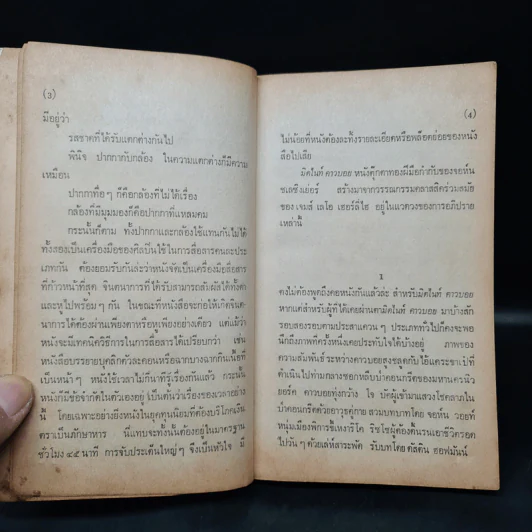 (3)
มีอยู่ว่า
รสชาดที่ได้รับแตกต่างกันไป
พินิจ ปากกากับกล้อง ในความแตกต่างก็มีความ
เหมือน
ปากกาทื่อๆ ก็คือกล้องที่ไม่ได้เรื่อง
กล้องที่มีมุมมองก็คือปากกาที่แหลมคม
กระนั้นก็ตาม ทั้งปากกาและกล้องใช้แทนกันไม่ได้
ทั้งสองเป็นเครื่องมือของศิลปินใช้ในการสื่อสารคนละประ
เภทกัน ต้องยอมรับกันล่ะว่าหนังจัดเป็นเครื่องมือสื่อสาร
ที่ก้าวหน้าที่สุด จินตนาการที่ได้รับสามารถสัมผัสได้ทั้งตา
และหูไปพร้อมๆ กัน ในขณะที่หนังสือจะก่อให้เกิดจินต
นาการได้ต้องผ่านเพียงตาหรือหูเพียงอย่างเดียว แต่แม้ว่า
หนังจะมีเทคนิควิธีการในการสื่อสารได้เปรียบกว่า เช่น
หนังสือบรรยายบุคลิกตัวละครหรือฉากบางฉากกินเนื้อที่
เป็นหน้าๆ หนังใช้เวลาไม่กี่นาทีก็รู้เรื่องกันแล้ว กระนั้น
หนังก็มีข้อจำกัดในตัวเองอยู่ เป็นต้นว่าเรื่องของเวลาอย่าง
นี้ โดยเฉพาะอย่างยิ่งหนังในยุคทุนนิยมที่ต้องบริโภคเงิน
ตราเป็นภักษาหาร นี่แทบจะทั้งนั้นต้องอยู่ในมาตรฐาน
ชั่วโมง ๔๕ นาที การจับประเด็นใหญ่ๆ จึงเป็นหัวใจ มี
(4)
ไม่น้อยที่หนังต้องละทิ้งรายละเอียดหรือพล็อตย่อยของหนัง
สือไปเสีย
มิดไนท์ คาวบอย หนังตุ๊กตาทองฝีมือกำกับของจอห์น
ชเลซิงเย่อร์ สร้างมาจากวรรณกรรมคลาสสิคร่วมสมัย
ของ เจมส์ เลโอ เฮอร์ลิไฮ อยู่ในแวดวงของการอภิปราย
เหล่านี้
1
คงไม่ต้องพูดถึงตอหนังกันแล้วล่ะ สำหรับมิดไนท์ คาวบอย
หากแต่สำหรับผู้ที่ได้เคยผ่านตามิดไนท์ คาวบอย มาบ้างสัก
รอบสองรอบตามประสาแควนๆ ประเภททั่วไปก็คงจะพอ
นึกถึงภาพที่ครั้งหนึ่งเคยประทับใจได้บ้างอยู่ ภาพของ
ความสัมพันธ์ ระหว่างคาวบอยสูงชลูดกับไอ้แคระขาเป๋ที่
ดำเนินไปท่ามกลางซอกหลืบป่าคอนกรีตของมหานครนิว
ยอร์ค คาวบอยทุ่งกว้าง โจ บัคผู้เข้ามาแสวงโชคลาภใน
ป่าคอนกรีตด้วยอาวุธคู่กาย สวมบทบาทโดย จอห์น วอยท์
หนุ่มเมืองพิการขี้เหงาริโค ริซโซผู้ต้องดิ้นรนเอาชีวิตรอด
ไปวันๆ ด้วยเล่ห์สาระพัด รับบทโดย ดัสติน ฮอฟมันน์